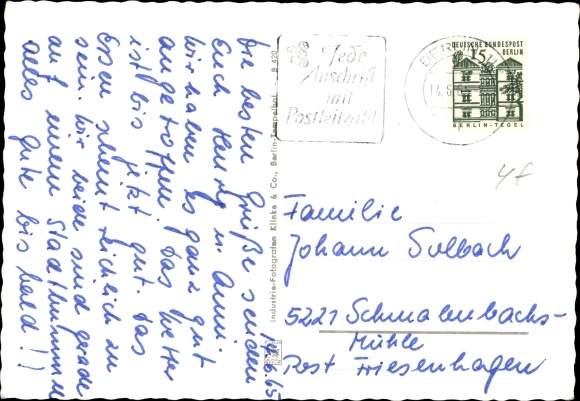 14.6.65
Die besten Grüße senden
Euch Henny u. Anni.
Wir haben es ganz gut
angetroffen. Das Wetter
ist bis jetzt gut. Das
Essen scheint reichlich zu
sein. Wir beide sind gerade
auf einem Stadtbummel
alles gute bis bald!!
Industrie-Fotografen Klinke & Co., Berlin-Tempelhof B 420
Jede
Anschrift
mit
Postleitzahl
BERLIN
DEUTSCHE BUNDESPOST
BERLIN
15
BERLIN-TEGEL
Familie
Johann Solbach
5221 Schmalenbachs-
Mühle
Post Friesenhagen